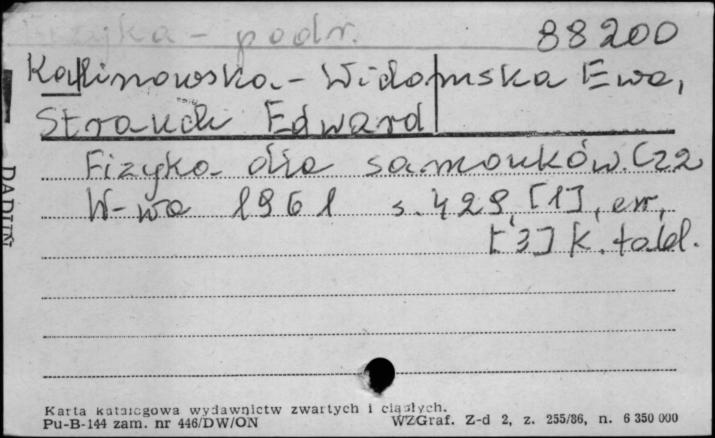 Fizyka - podr.
88200
Kalinowska - Widomska Ewa,
Strauch Edward
Fizyka dla samouków. Cz 2
W-wa 1961 s. 429, [1], err,
[3] k. tabl.
RADUŃ
Karta katalogowa wydawnictw zwartych i ciągłych.
Pu-B-144 zam. nr 446/DW/ON
WZGraf. Z-d 2, z. 255/86, n. 6 350 000